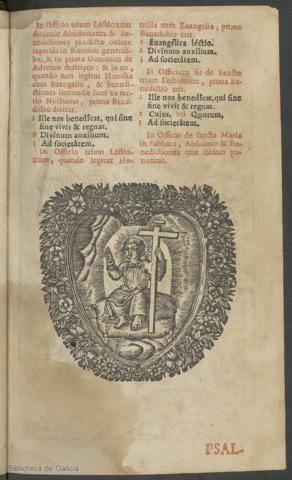 In Officio trium Lectionum
dicuntur Absolutiones & Be-
nedictiones prædictæ ordine
superiùs in Rubricis generali-
bus, & in prima Dominica de
Adventu descripto: & in eo,
quando non legitur Homilia
cum Evangelio, & benedi-
ctiones sumendæ sunt ex ter-
tio Nocturno, prima Bene-
dictio dicitur.
Ille nos benedicat, qui sine
fine vivit & regnat.
2 Divinum auxilium.
3 Ad societátem.
In Officio trium Lectio-
num, quando legitur Ho-
milia cum Evangelio, prima
Benedictio erit.
1 Evangélica léctio.
2 Divinum auxilium.
3 Ad societátem.
Si Officium fit de Sancto
trium Lectionum, prima Be-
nedictio erit.
1 Ille nos benedícat, qui sine
fine vivit & regnat.
2 Cujus, vel Quorum,
3 Ad societátem.
In Officio de sancta Maria
in Sabbato, Absolutio & Be-
nedictiones quæ ibidem po-
nuntur.
PSAL-
Biblioteca de Galicia